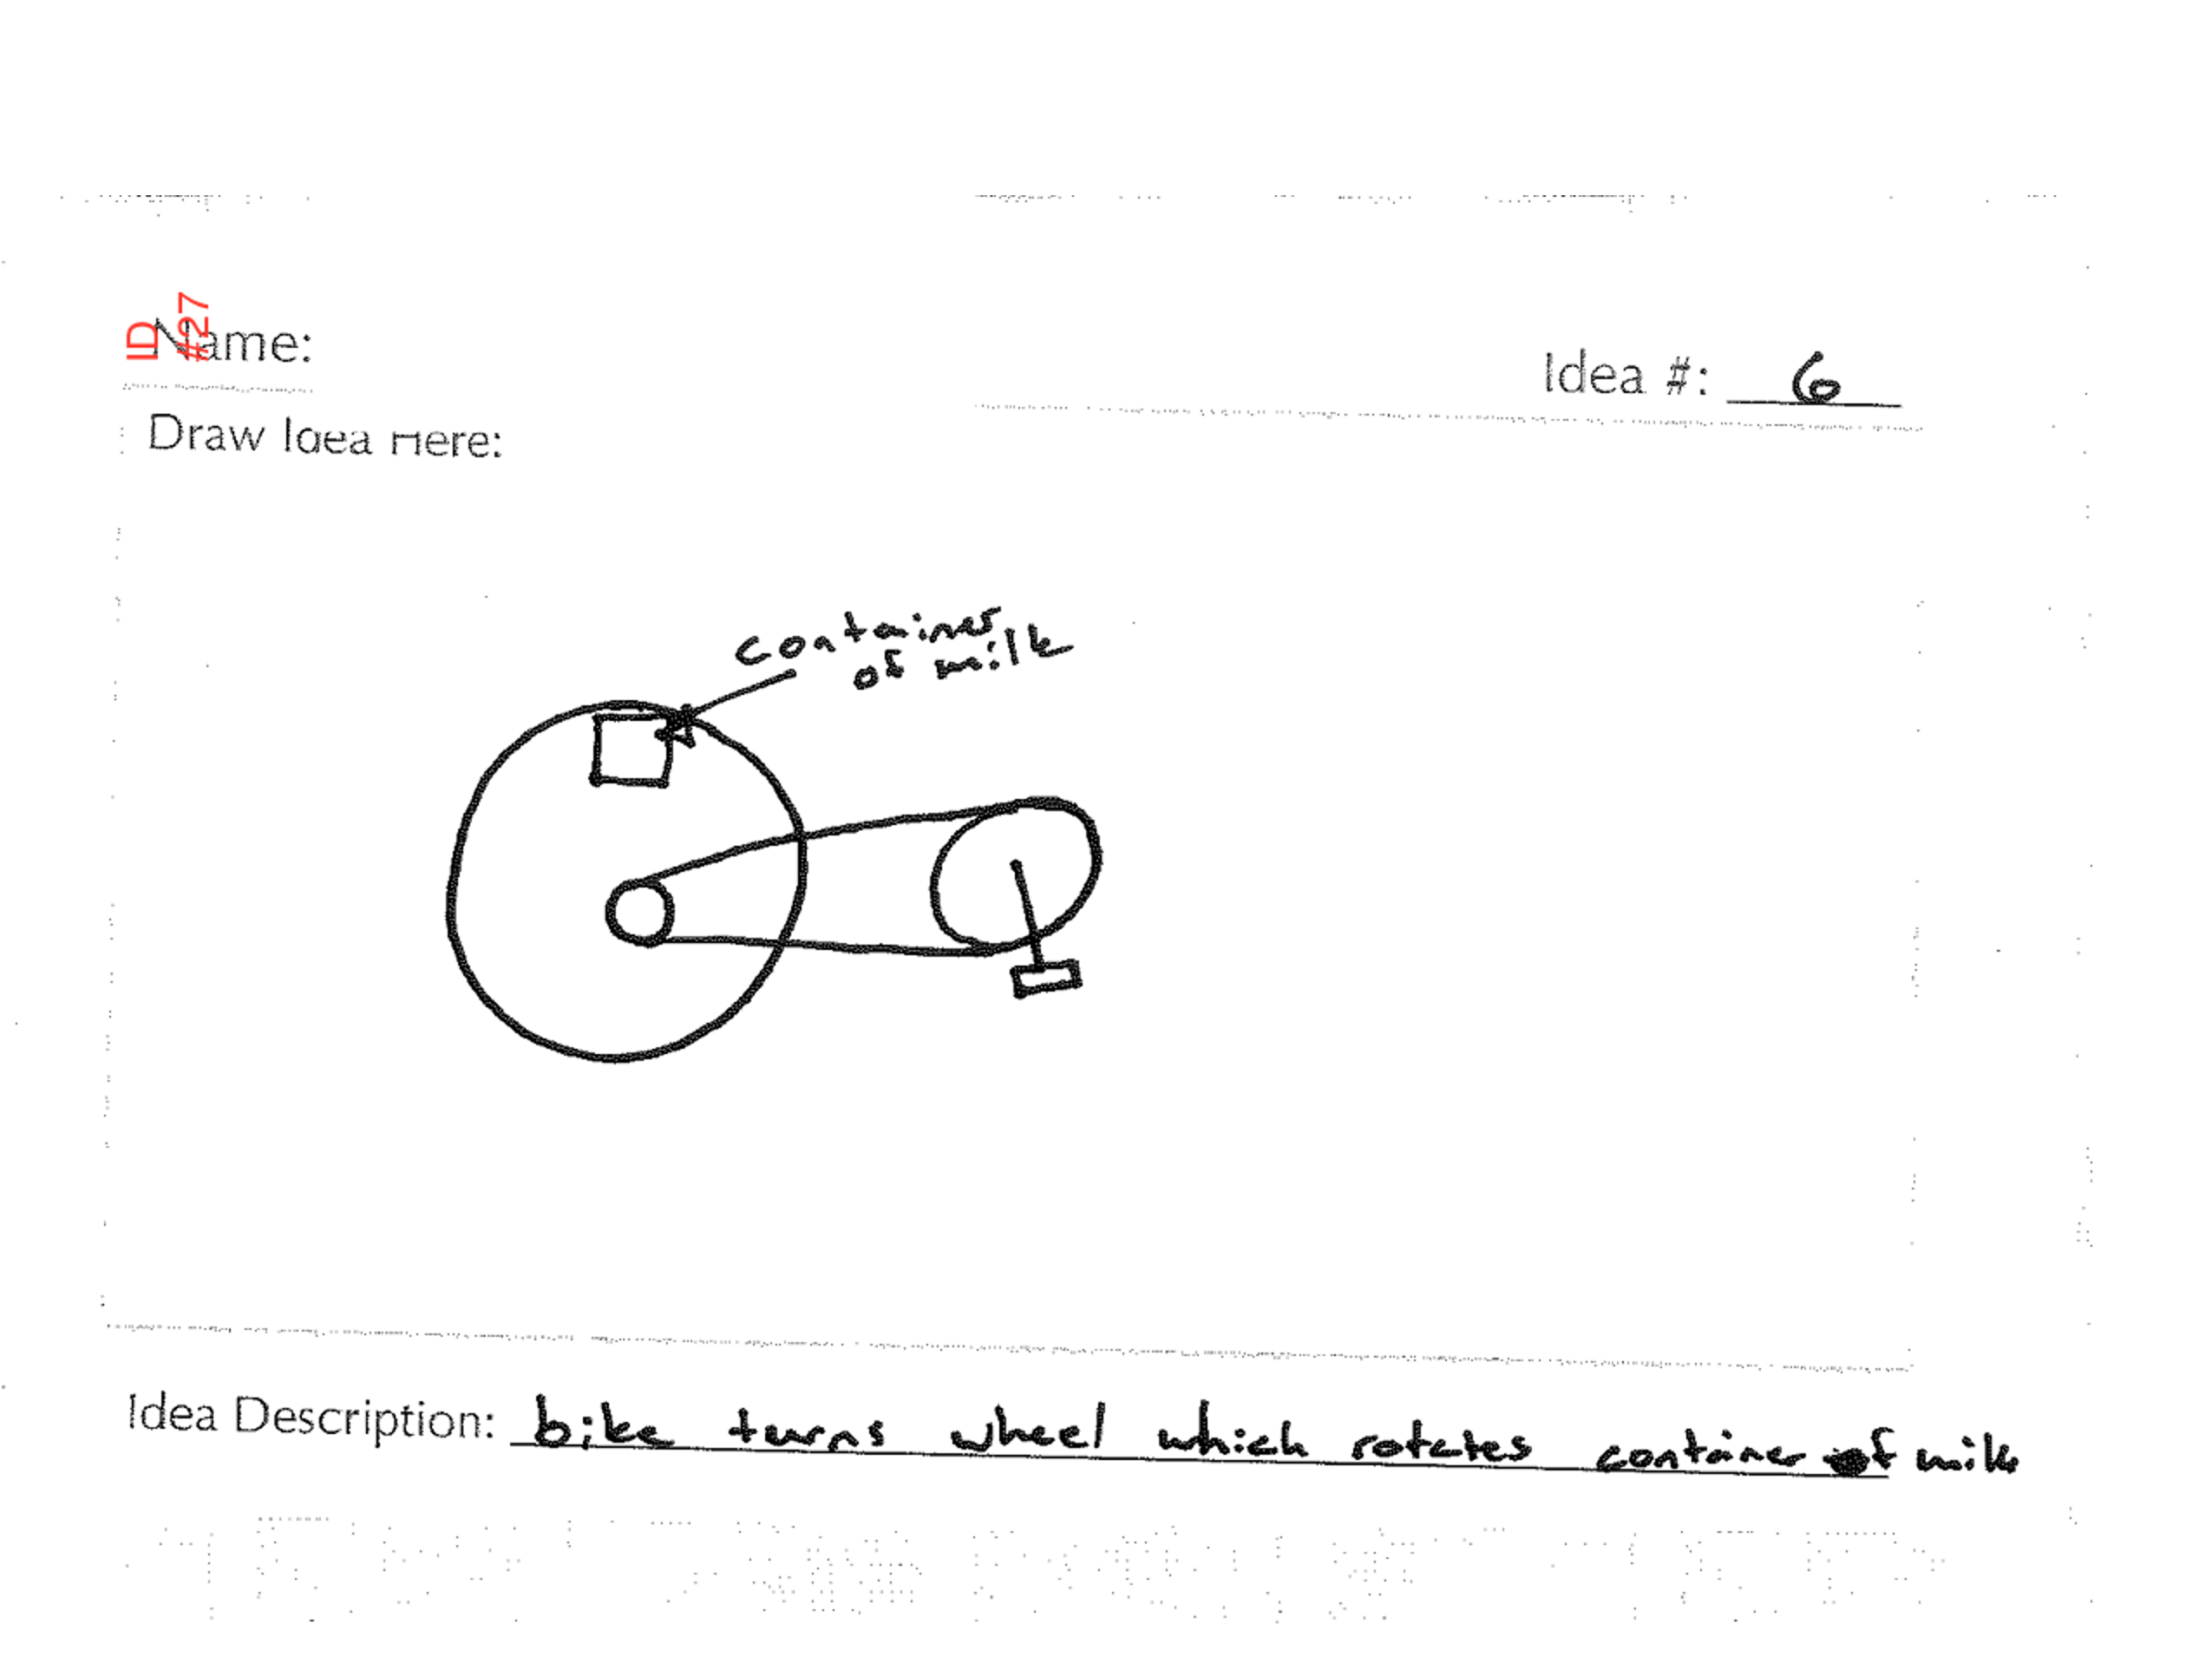 ID
#27
Name:
Idea #: 6
Draw Idea Here:
container
of milk
Idea Description: bike turns wheel which rotates container of milk